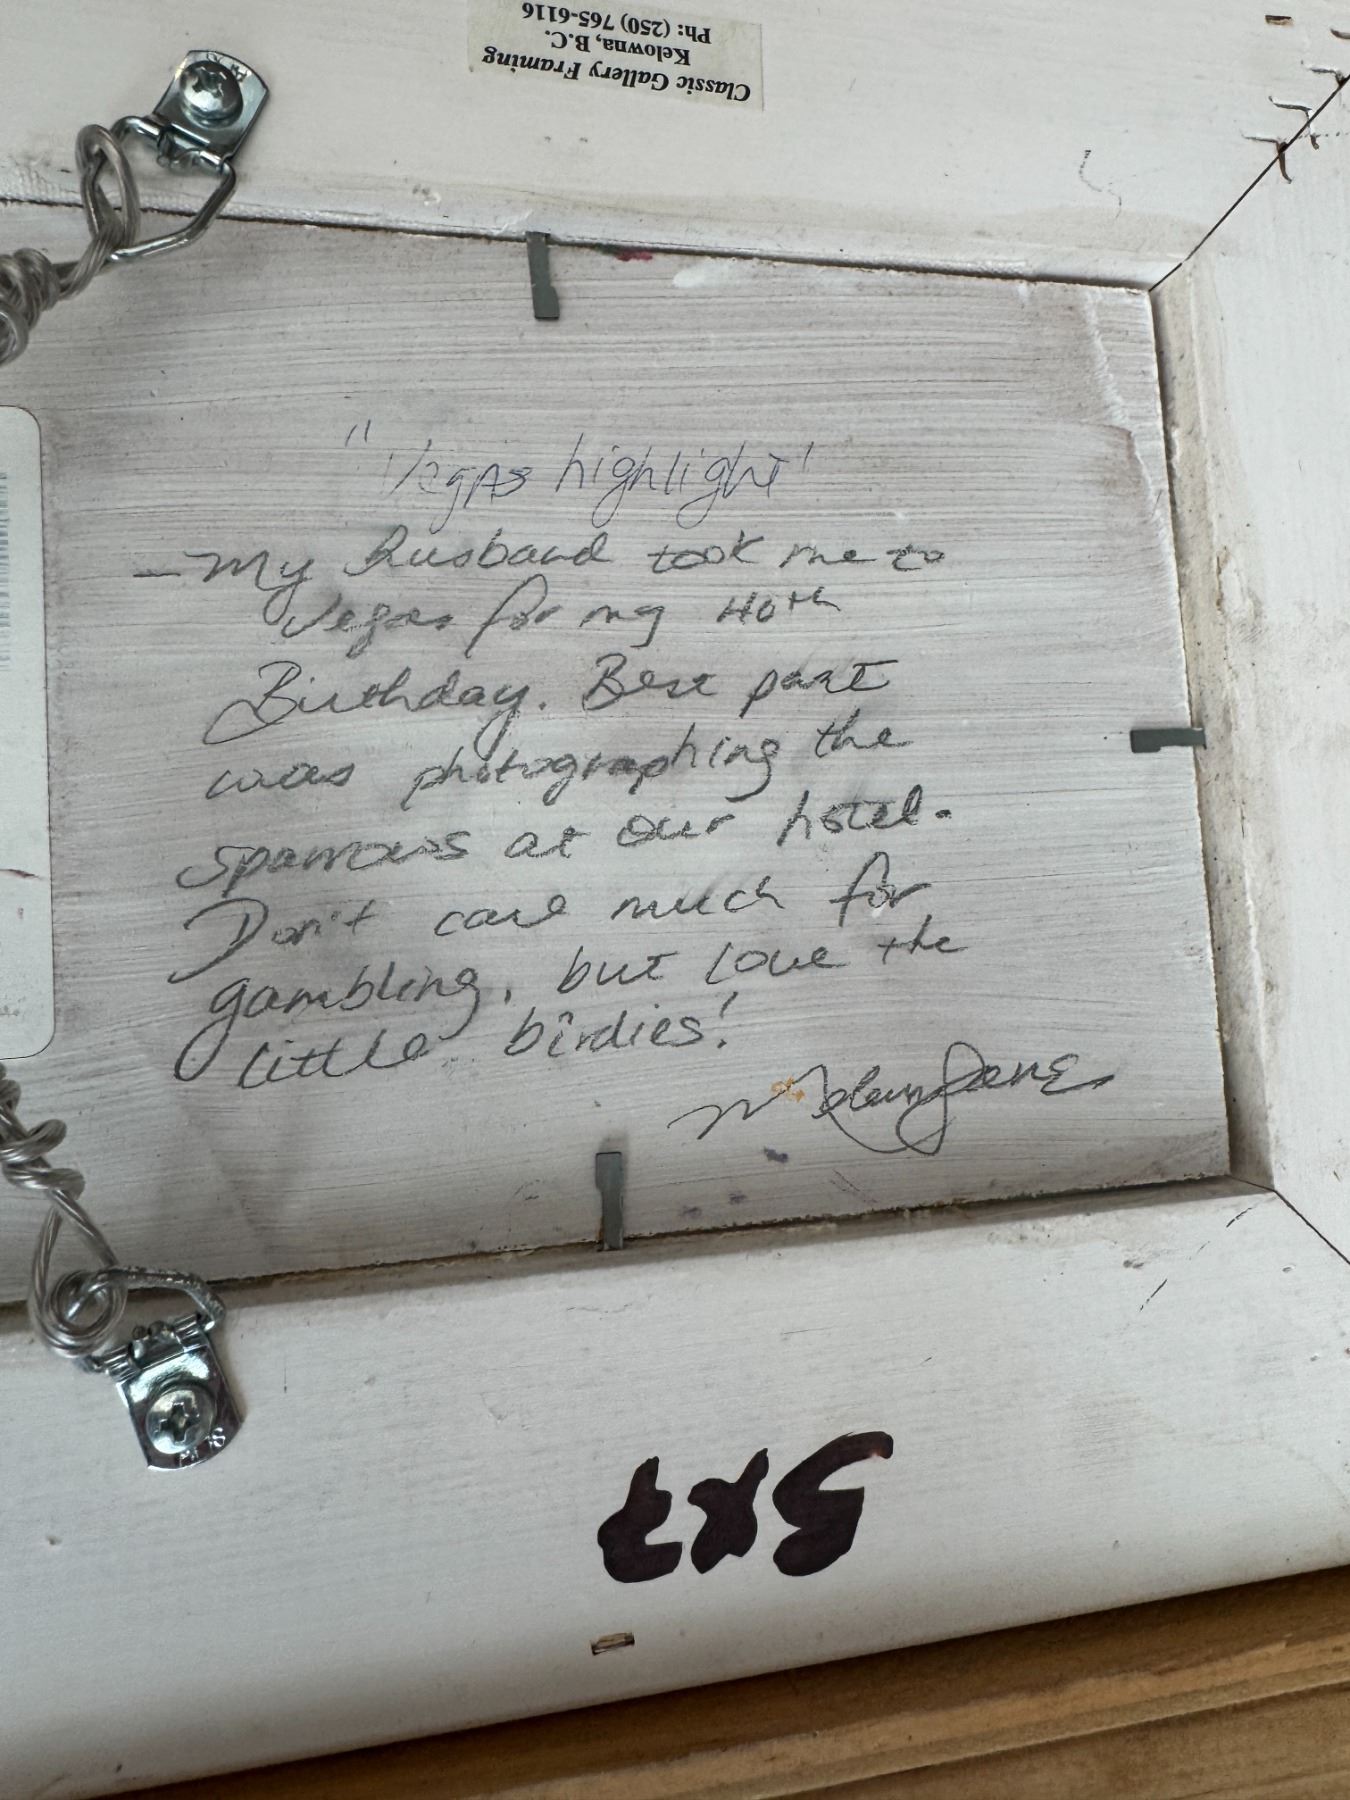 Classic Gallery Framing
Kelowna, B.C.
Ph: (250) 765-6116
"Vegas highlight"
- My husband took me to
Vegas for my 40th
Birthday. Best part
was photographing the
sparrows at our hotel.
Don't care much for
gambling, but love the
little birdies!
5x7